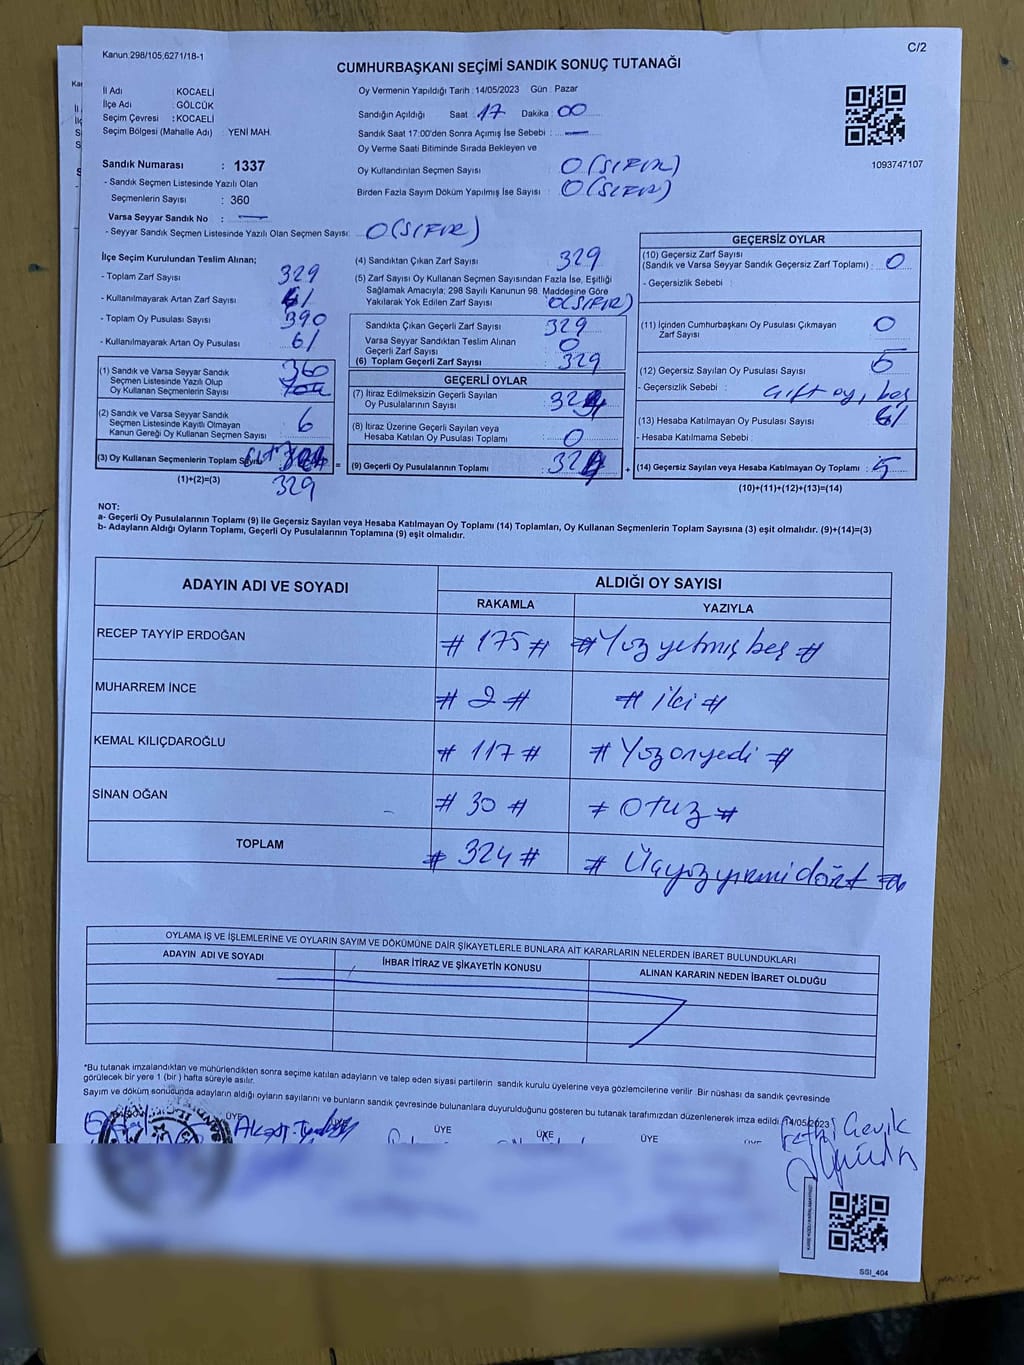 C/2
Kanun 298/105,6271/18-1
CUMHURBAŞKANI SEÇİMİ SANDIK SONUÇ TUTANAĞI
İl Adı : KOCAELİ
İlçe Adı : GÖLCÜK
Seçim Çevresi : KOCAELİ
Seçim Bölgesi (Mahalle Adı) YENİ MAH.
Sandık Numarası : 1337
- Sandık Seçmen Listesinde Yazılı Olan
Seçmenlerin Sayısı : 360
Varsa Seyyar Sandık No : —
- Seyyar Sandık Seçmen Listesinde Yazılı Olan Seçmen Sayısı: 0 (SIFIR)
Oy Vermenin Yapıldığı Tarih : 14/05/2023 Gün : Pazar
Sandığın Açıldığı Saat : 17 Dakika : 00
Sandık Saat 17:00'den Sonra Açımış İse Sebebi : —
Oy Verme Saati Bitiminde Sırada Bekleyen ve
Oy Kullandırılan Seçmen Sayısı : 0 (SIFIR)
Birden Fazla Sayım Döküm Yapılmış İse Sayısı : 0 (SIFIR)
1093747107
İlçe Seçim Kurulundan Teslim Alınan;
- Toplam Zarf Sayısı 329
- Kullanılmayarak Artan Zarf Sayısı 61
- Toplam Oy Pusulası Sayısı 390
- Kullanılmayarak Artan Oy Pusulası 61
(1) Sandık ve Varsa Seyyar Sandık
Seçmen Listesinde Yazılı Olup
Oy Kullanan Seçmenlerin Sayısı 360
(2) Sandık ve Varsa Seyyar Sandık
Seçmen Listesinde Kayıtlı Olmayan
Kanun Gereği Oy Kullanan Seçmen Sayısı 6
(3) Oy Kullanan Seçmenlerin Toplam
(1)+(2)=(3) 329
(4) Sandıktan Çıkan Zarf Sayısı 329
(5) Zarf Sayısı Oy Kullanan Seçmen Sayısından Fazla İse, Eşitliği
Sağlamak Amacıyla; 298 Sayılı Kanunun 98. Maddesine Göre
Yakılarak Yok Edilen Zarf Sayısı 0 (SIFIR)
Sandıkta Çıkan Geçerli Zarf Sayısı 329
Varsa Seyyar Sandıktan Teslim Alınan
Geçerli Zarf Sayısı 0
(6) Toplam Geçerli Zarf Sayısı 329
GEÇERLİ OYLAR
(7) İtiraz Edilmeksizin Geçerli Sayılan
Oy Pusulalarının Sayısı 324
(8) İtiraz Üzerine Geçerli Sayılan veya
Hesaba Katılan Oy Pusulası Toplamı 0
= (9) Geçerli Oy Pusulalarının Toplamı 324 +
GEÇERSİZ OYLAR
(10) Geçersiz Zarf Sayısı
(Sandık ve Varsa Seyyar Sandık Geçersiz Zarf Toplamı) : 0
- Geçersizlik Sebebi :
(11) İçinden Cumhurbaşkanı Oy Pusulası Çıkmayan
Zarf Sayısı 0
(12) Geçersiz Sayılan Oy Pusulası Sayısı 5
- Geçersizlik Sebebi : Çift oy, beş
(13) Hesaba Katılmayan Oy Pusulası Sayısı 61
- Hesaba Katılmama Sebebi :
(14) Geçersiz Sayılan veya Hesaba Katılmayan Oy Toplamı : 5
(10)+(11)+(12)+(13)=(14)
NOT:
a- Geçerli Oy Pusulalarının Toplamı (9) ile Geçersiz Sayılan veya Hesaba Katılmayan Oy Toplamı (14) Toplamları, Oy Kullanan Seçmenlerin Toplam Sayısına (3) eşit olmalıdır. (9)+(14)=(3)
b- Adayların Aldığı Oyların Toplamı, Geçerli Oy Pusulalarının Toplamına (9) eşit olmalıdır.
ADAYIN ADI VE SOYADI ALDIĞI OY SAYISI
RAKAMLA YAZIYLA
RECEP TAYYİP ERDOĞAN # 175 # # Yüz yetmiş beş #
MUHARREM İNCE # 2 # # iki #
KEMAL KILIÇDAROĞLU # 117 # # Yüz onyedi #
SİNAN OĞAN # 30 # # Otuz #
TOPLAM # 324 # # Üçyüzyirmidört #
OYLAMA İŞ VE İŞLEMLERİNE VE OYLARIN SAYIM VE DÖKÜMÜNE DAİR ŞİKAYETLERLE BUNLARA AİT KARARLARIN NELERDEN İBARET BULUNDUKLARI
ADAYIN ADI VE SOYADI İHBAR İTİRAZ VE ŞİKAYETİN KONUSU ALINAN KARARIN NEDEN İBARET OLDUĞU
*Bu tutanak imzalandıktan ve mühürlendikten sonra seçime katılan adayların ve talep eden siyasi partilerin sandık kurulu üyelerine veya gözlemcilerine verilir. Bir nüshası da sandık çevresinde
görülecek bir yere 1 (bir) hafta süreyle asılır.
Sayım ve döküm sonucunda adayların aldığı oyların sayılarını ve bunların sandık çevresinde bulunanlara duyurulduğunu gösteren bu tutanak tarafımızdan düzenlenerek imza edildi. (14/05/2023)
ÜYE ÜYE ÜYE ÜYE
SSI_404